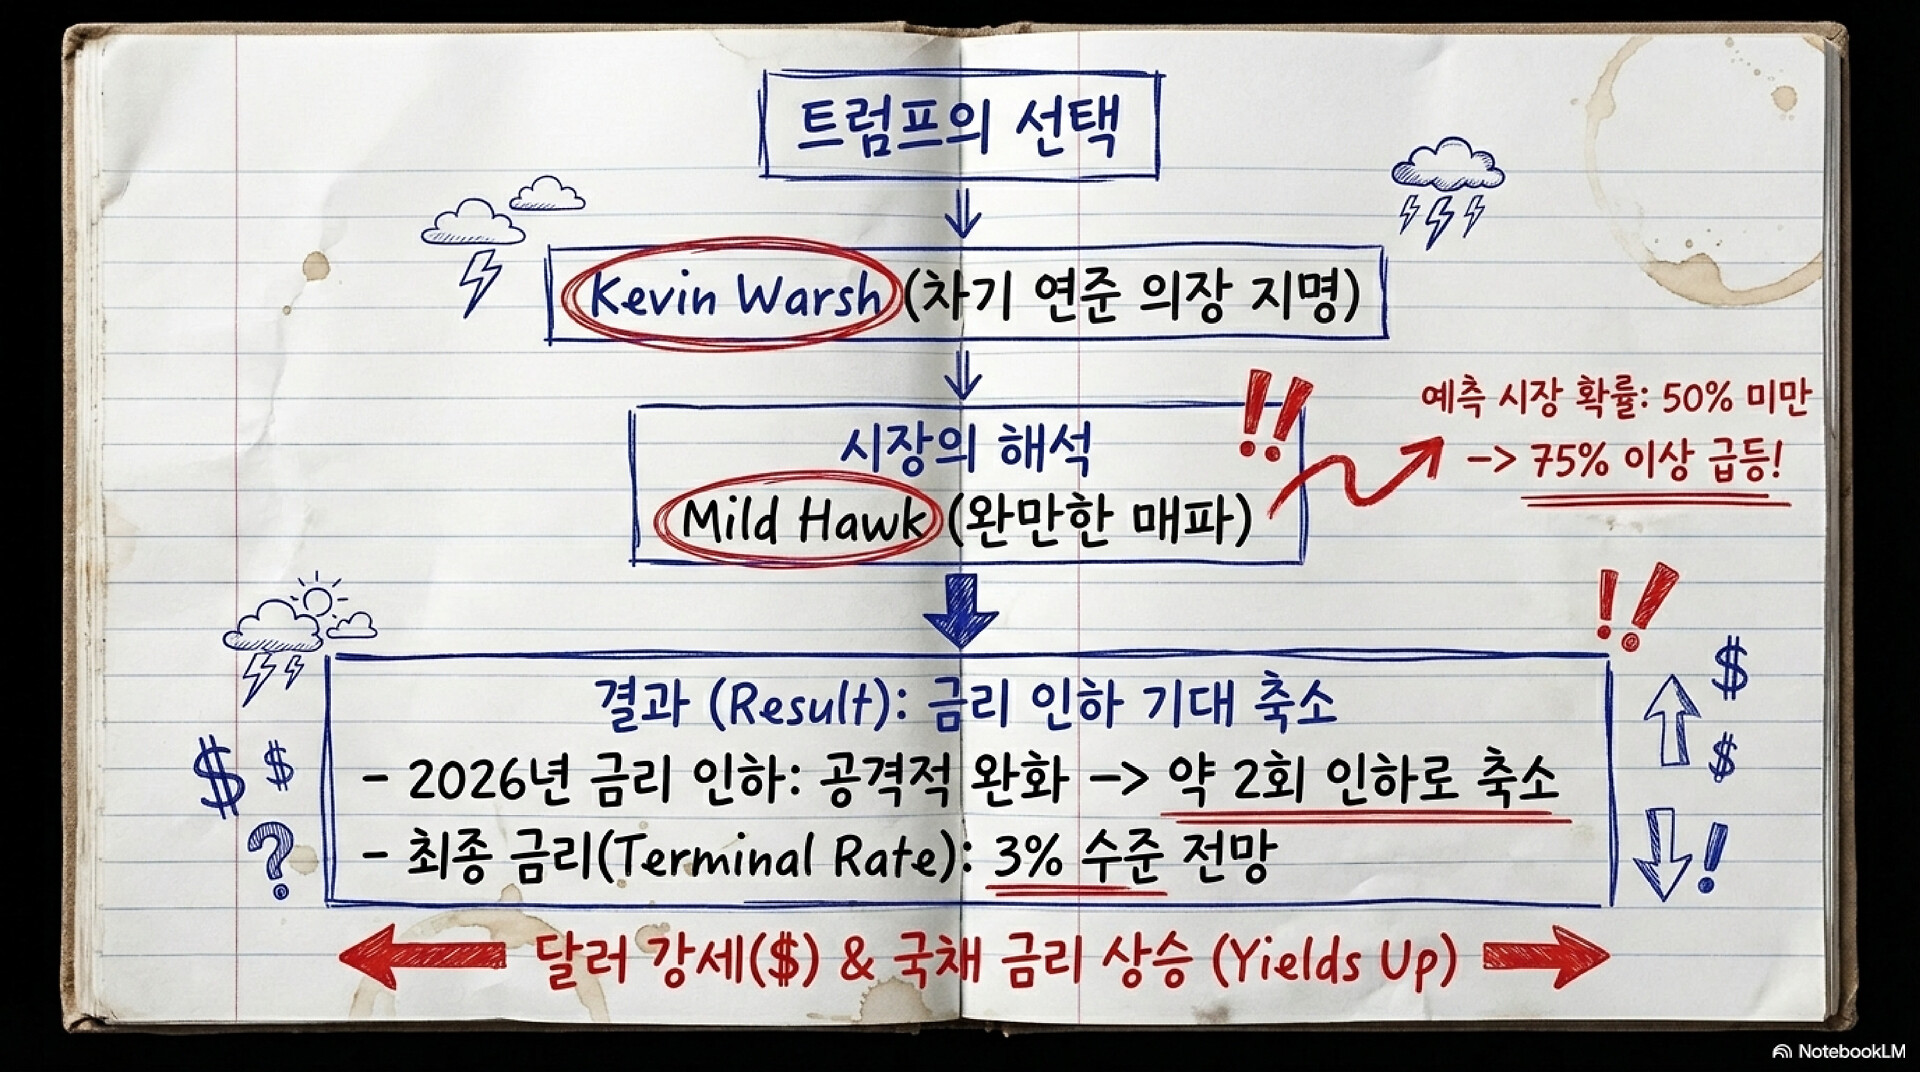 트럼프의 선택
Kevin Warsh (차기 연준 의장 지명)
시장의 해석
Mild Hawk (완만한 매파)
!!
예측 시장 확률: 50% 미만
-> 75% 이상 급등!
!!
결과 (Result): 금리 인하 기대 축소
- 2026년 금리 인하: 공격적 완화 -> 약 2회 인하로 축소
- 최종 금리(Terminal Rate): 3% 수준 전망
$ $
?
$
$
!
달러 강세($) & 국채 금리 상승 (Yields Up)
NotebookLM